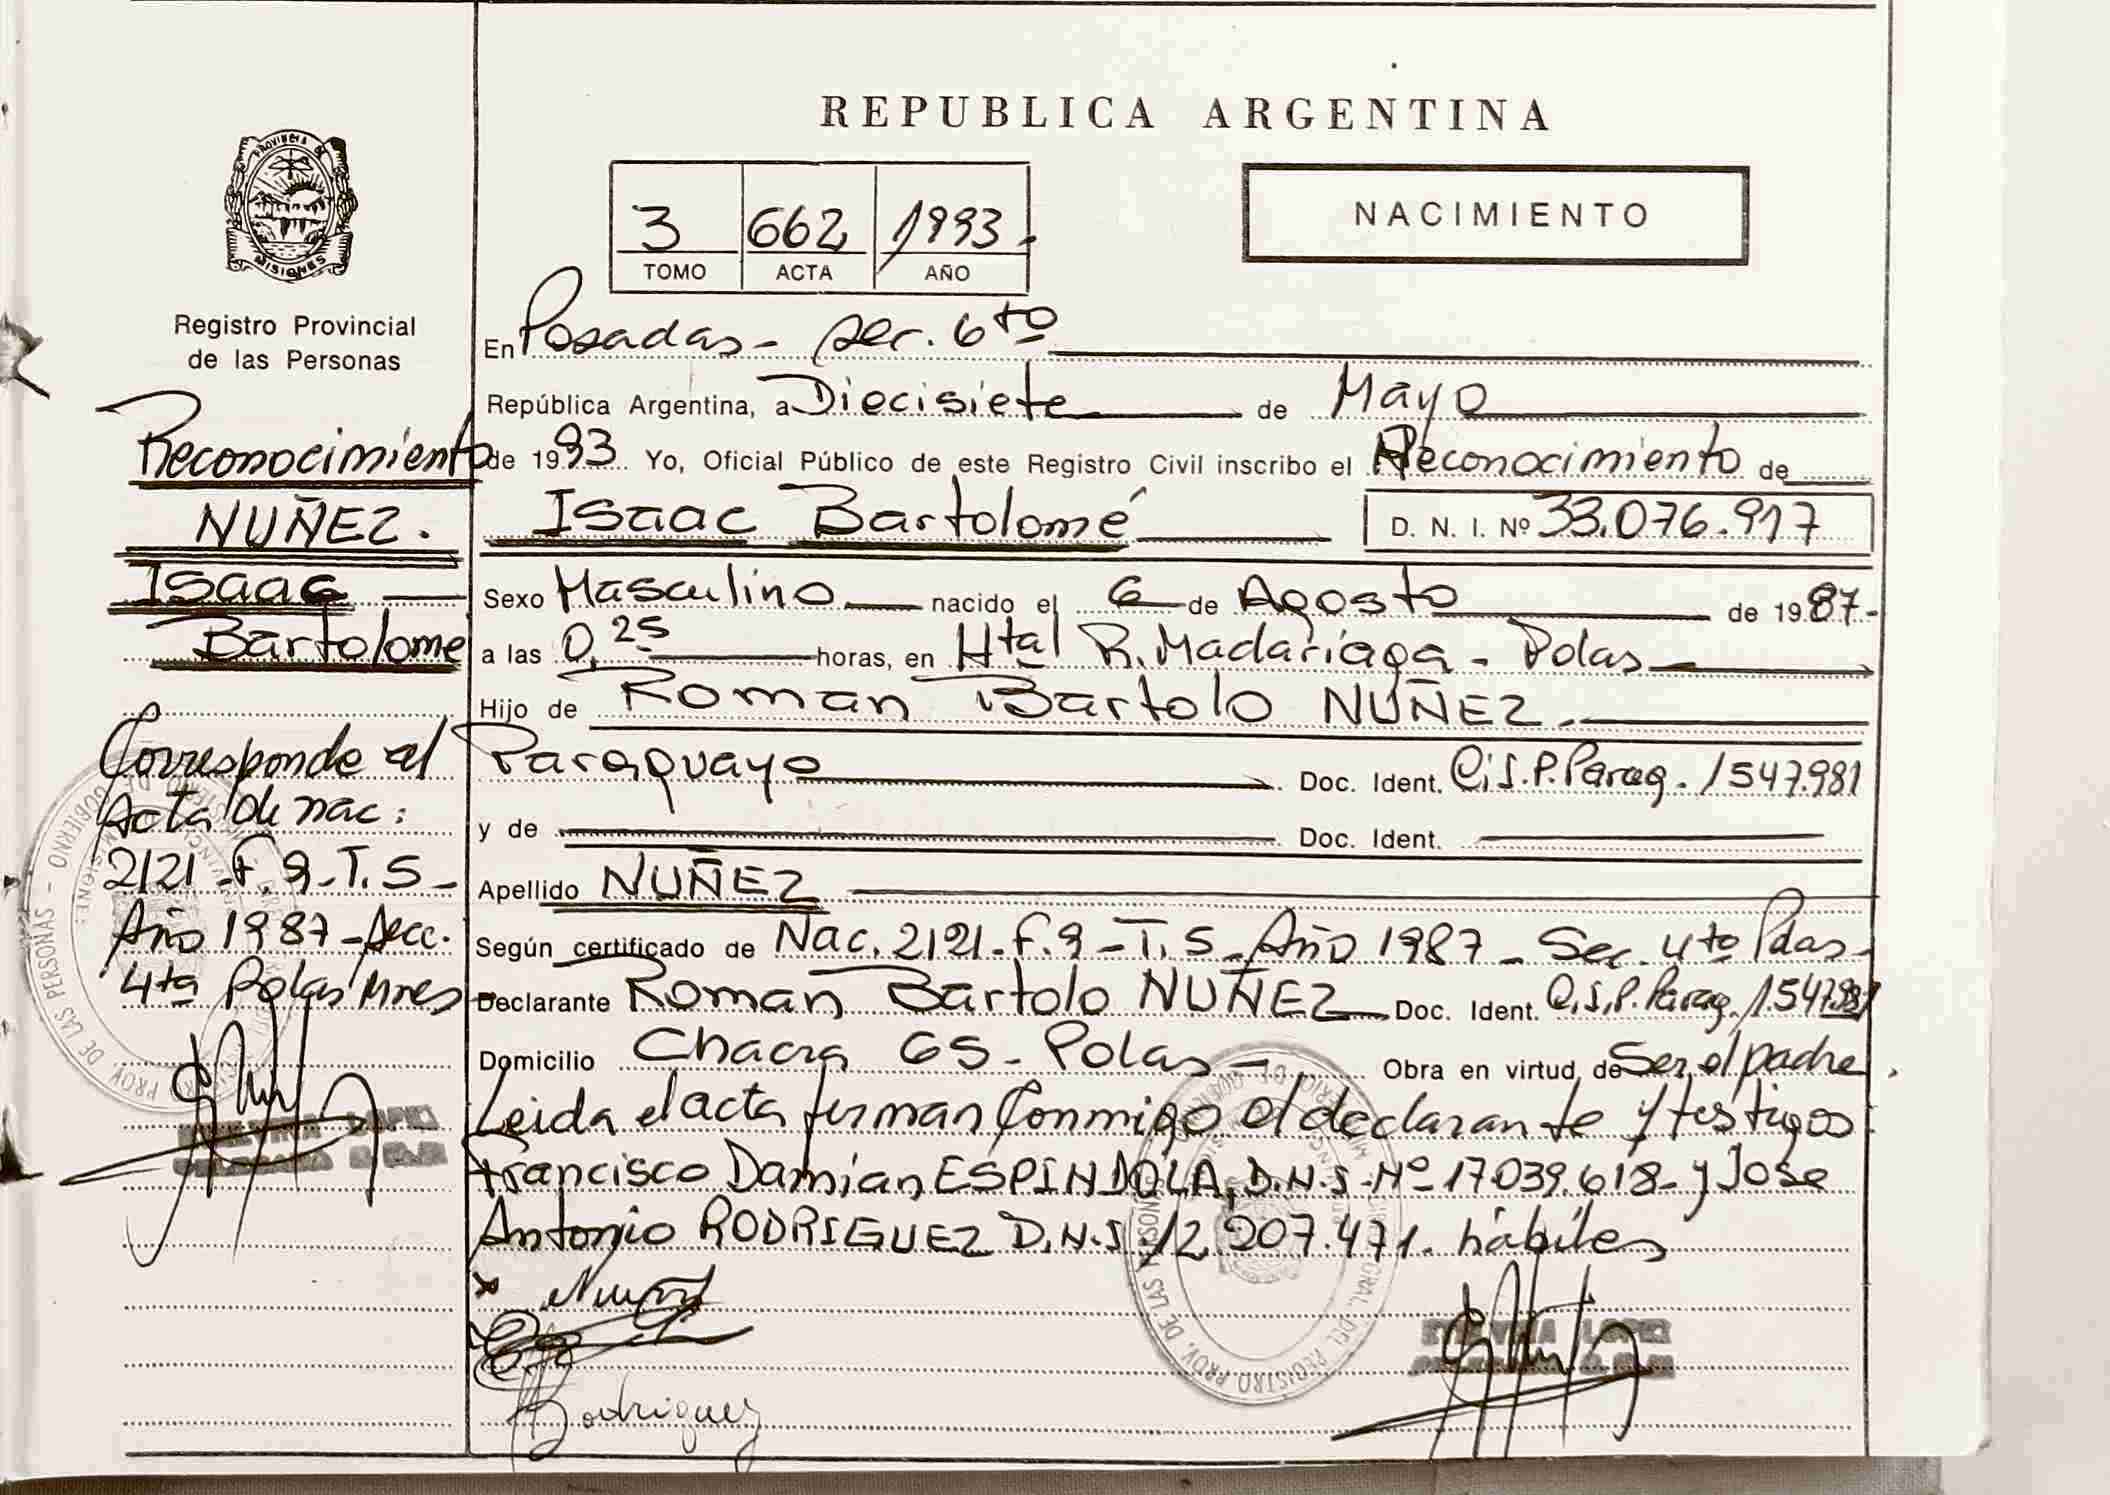 REPUBLICA ARGENTINA
PROVINCIA DE
MISIONES
3 662 1993
TOMO ACTA AÑO
NACIMIENTO
Registro Provincial
de las Personas
Reconocimiento
NUÑEZ.
Isaac
Bartolome
Corresponde al
Acta de nac:
2121-F.9-T.5-
Año 1987-Secc.
4ta Pdas Mnes
En Posadas - Sec. 6to
República Argentina, a Diecisiete de Mayo
de 1993 Yo, Oficial Público de este Registro Civil inscribo el Reconocimiento de
Isaac Bartolomé D. N. I. Nº 33.076.917
Sexo Masculino nacido el 6 de Agosto de 1987-
a las 0,25 horas, en Htal R. Madariaga - Pdas
Hijo de Roman Bartolo NUÑEZ.
Paraguayo Doc. Ident. C.I.P. Parag. 1547.981
y de Doc. Ident.
Apellido NUÑEZ
Según certificado de Nac. 2121-F.9-T.5-Año 1987-Sec. 4to Pdas-
Declarante Roman Bartolo NUÑEZ Doc. Ident. C.I.P. Parag. 1.547.981
Domicilio Chacra 65-Pdas- Obra en virtud de Ser el padre.
Leida el acta firman Conmigo el declarante y testigos
Francisco Damian ESPINDOLA, D.N.I. Nº 17.039.618- y Jose
Antonio RODRIGUEZ D.N.I. 12.207.471. hábiles
Rodriguez